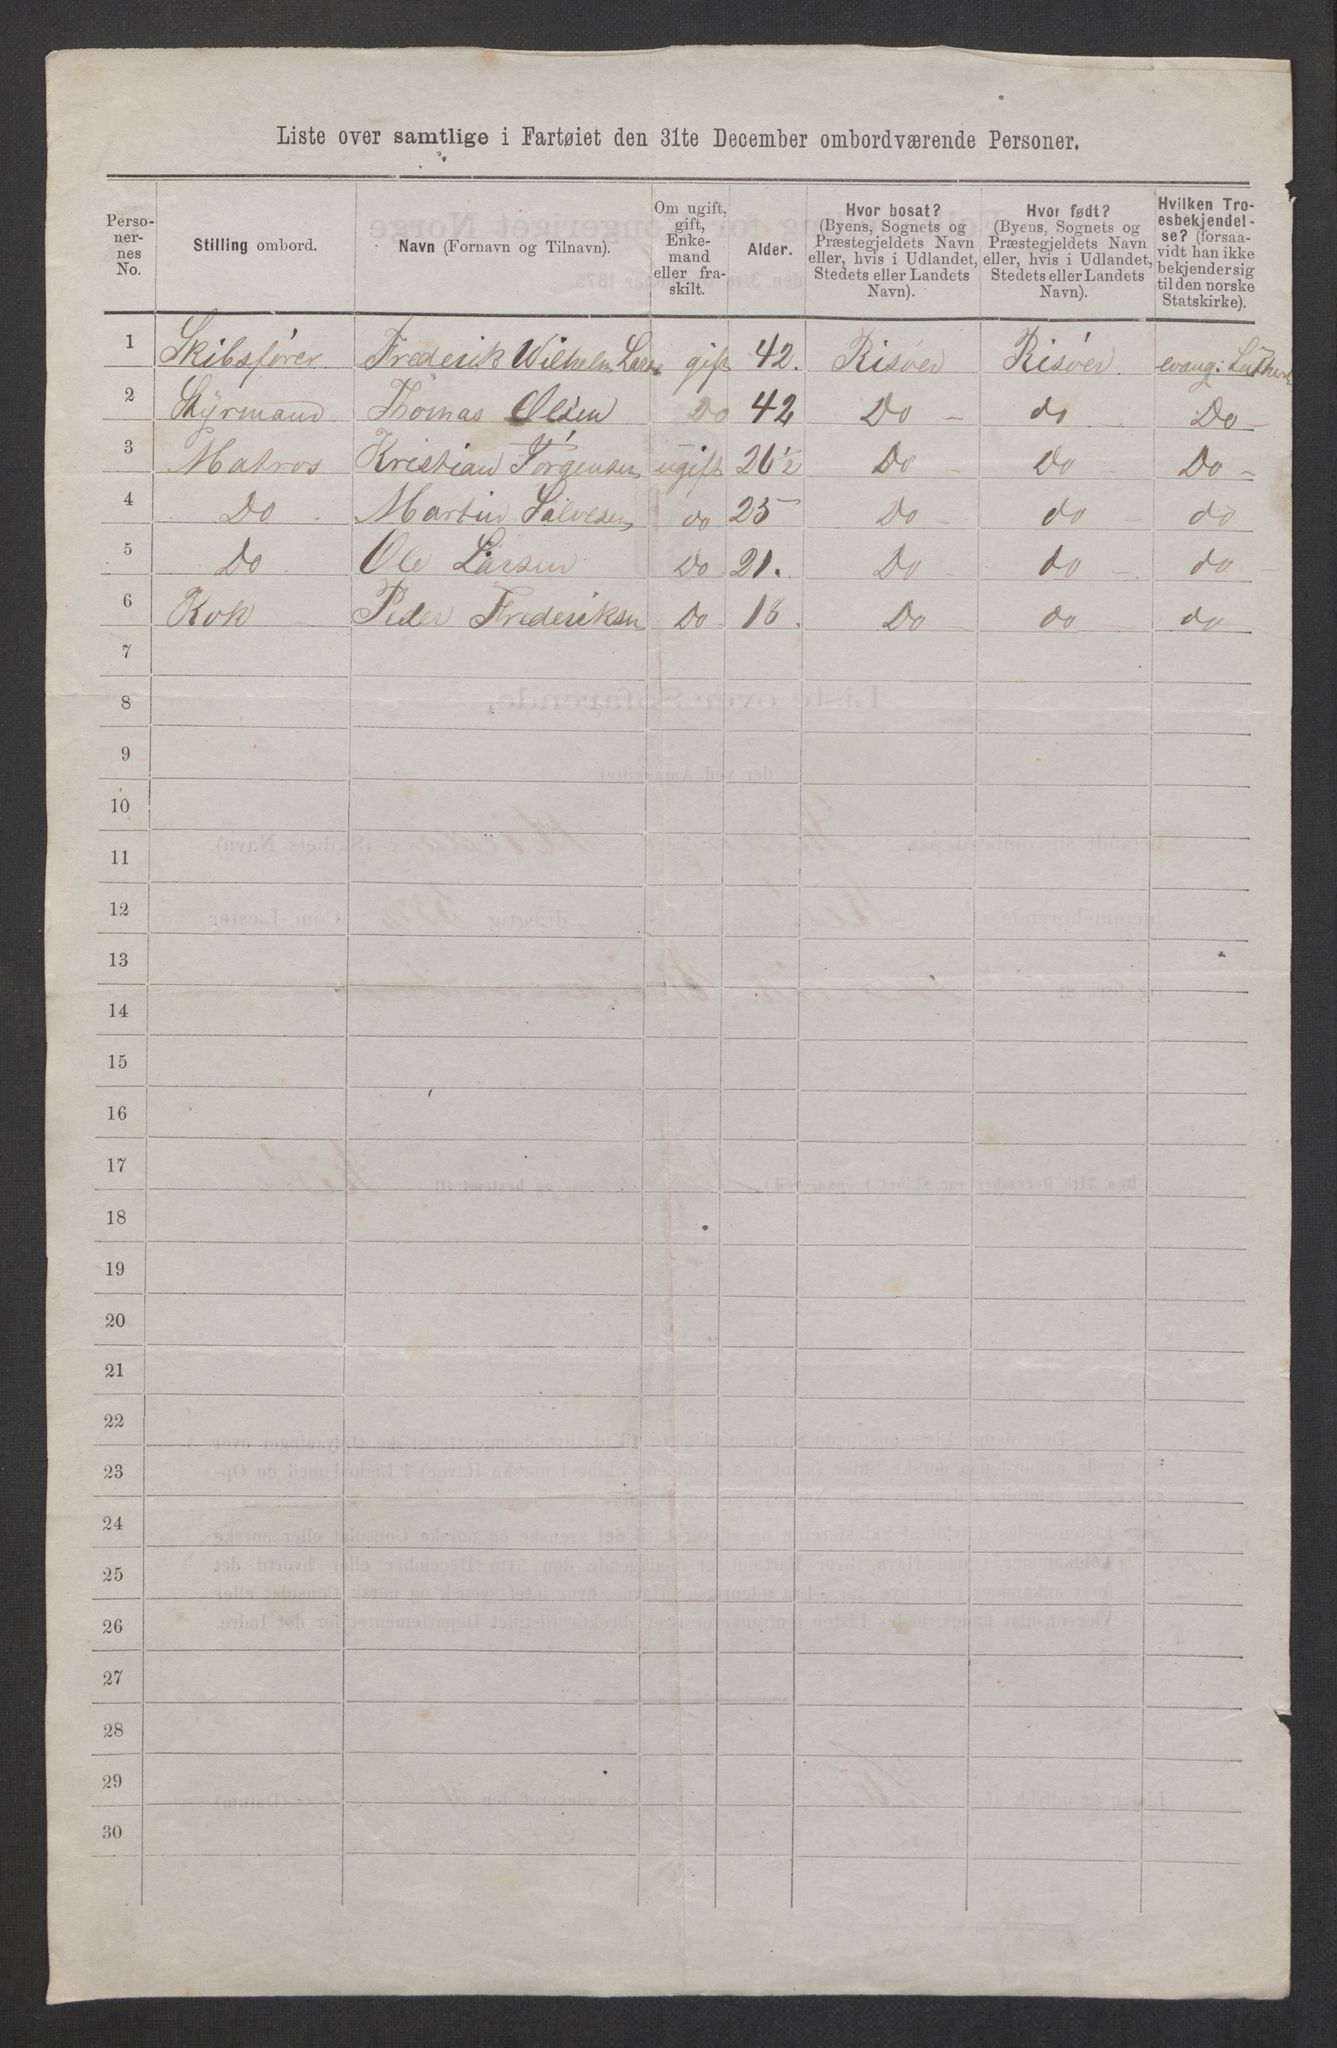 Liste over samtlige i Fartøiet den 31te December ombordværende Personer.
Perso-
ner-
nes
No.
Stilling ombord.
Navn (Fornavn og Tilnavn).
Om ugift,
gift,
Enke-
mand
eller fra-
skilt.
Alder.
Hvor bosat?
(Byens, Sognets og
Præstegjeldets Navn
eller, hvis i Udlandet,
Stedets eller Landets
Navn).
Hvor født?
(Byens, Sognets og
Præstegjeldets Navn
eller, hvis i Udlandet,
Stedets eller Landets
Navn).
Hvilken Tro-
esbekjendel-
se? (forsaa-
vidt han ikke
bekjender sig
til den norske
Statskirke).
1 Skibsfører Frederik Wilhelm gift 42. Risöer Risöer evang: Luthersk
2 Styrmand Thomas Olsen Do 42 Do - do - Do -
3 Matros Kristian Jörgensen ugift 26½ Do - Do - Do -
4 Do Martin Salvesen do 25 Do - do - do
5 Do Ole Larsen Do 21. Do - do - do -
6 Kok Peder Frederiksen Do 18. Do - do - do
7
8
9
10
11
12
13
14
15
16
17
18
19
20
21
22
23
24
25
26
27
28
29
30